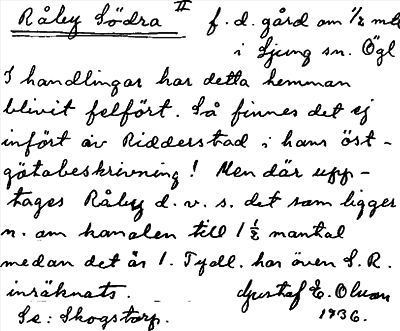 Råby Södra II f. d. gård om 1/2 mtl
i Ljung sn. Ögl
I handlingar har detta hemman
blivit felfört. Så finnes det ej
infört av Ridderstad i hans öst-
götabeskrivning! Men där upp-
tages Råby d. v. s. det som ligger
n. om kanalen till 1 1/2 mantal
medan det är 1. Tydl. har även S. R.
inräknats. Gustaf E. Olsson
Se: Skogstorp. 1936.